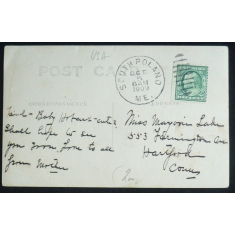 USA
POST CA
SOUTH POLAND
OCT
5
1909
ME.
Baby
Shall hope to see
you soon Love to all
from Mother
Miss Marjorie Lake
553 Farmington Ave
Hartford
Conn